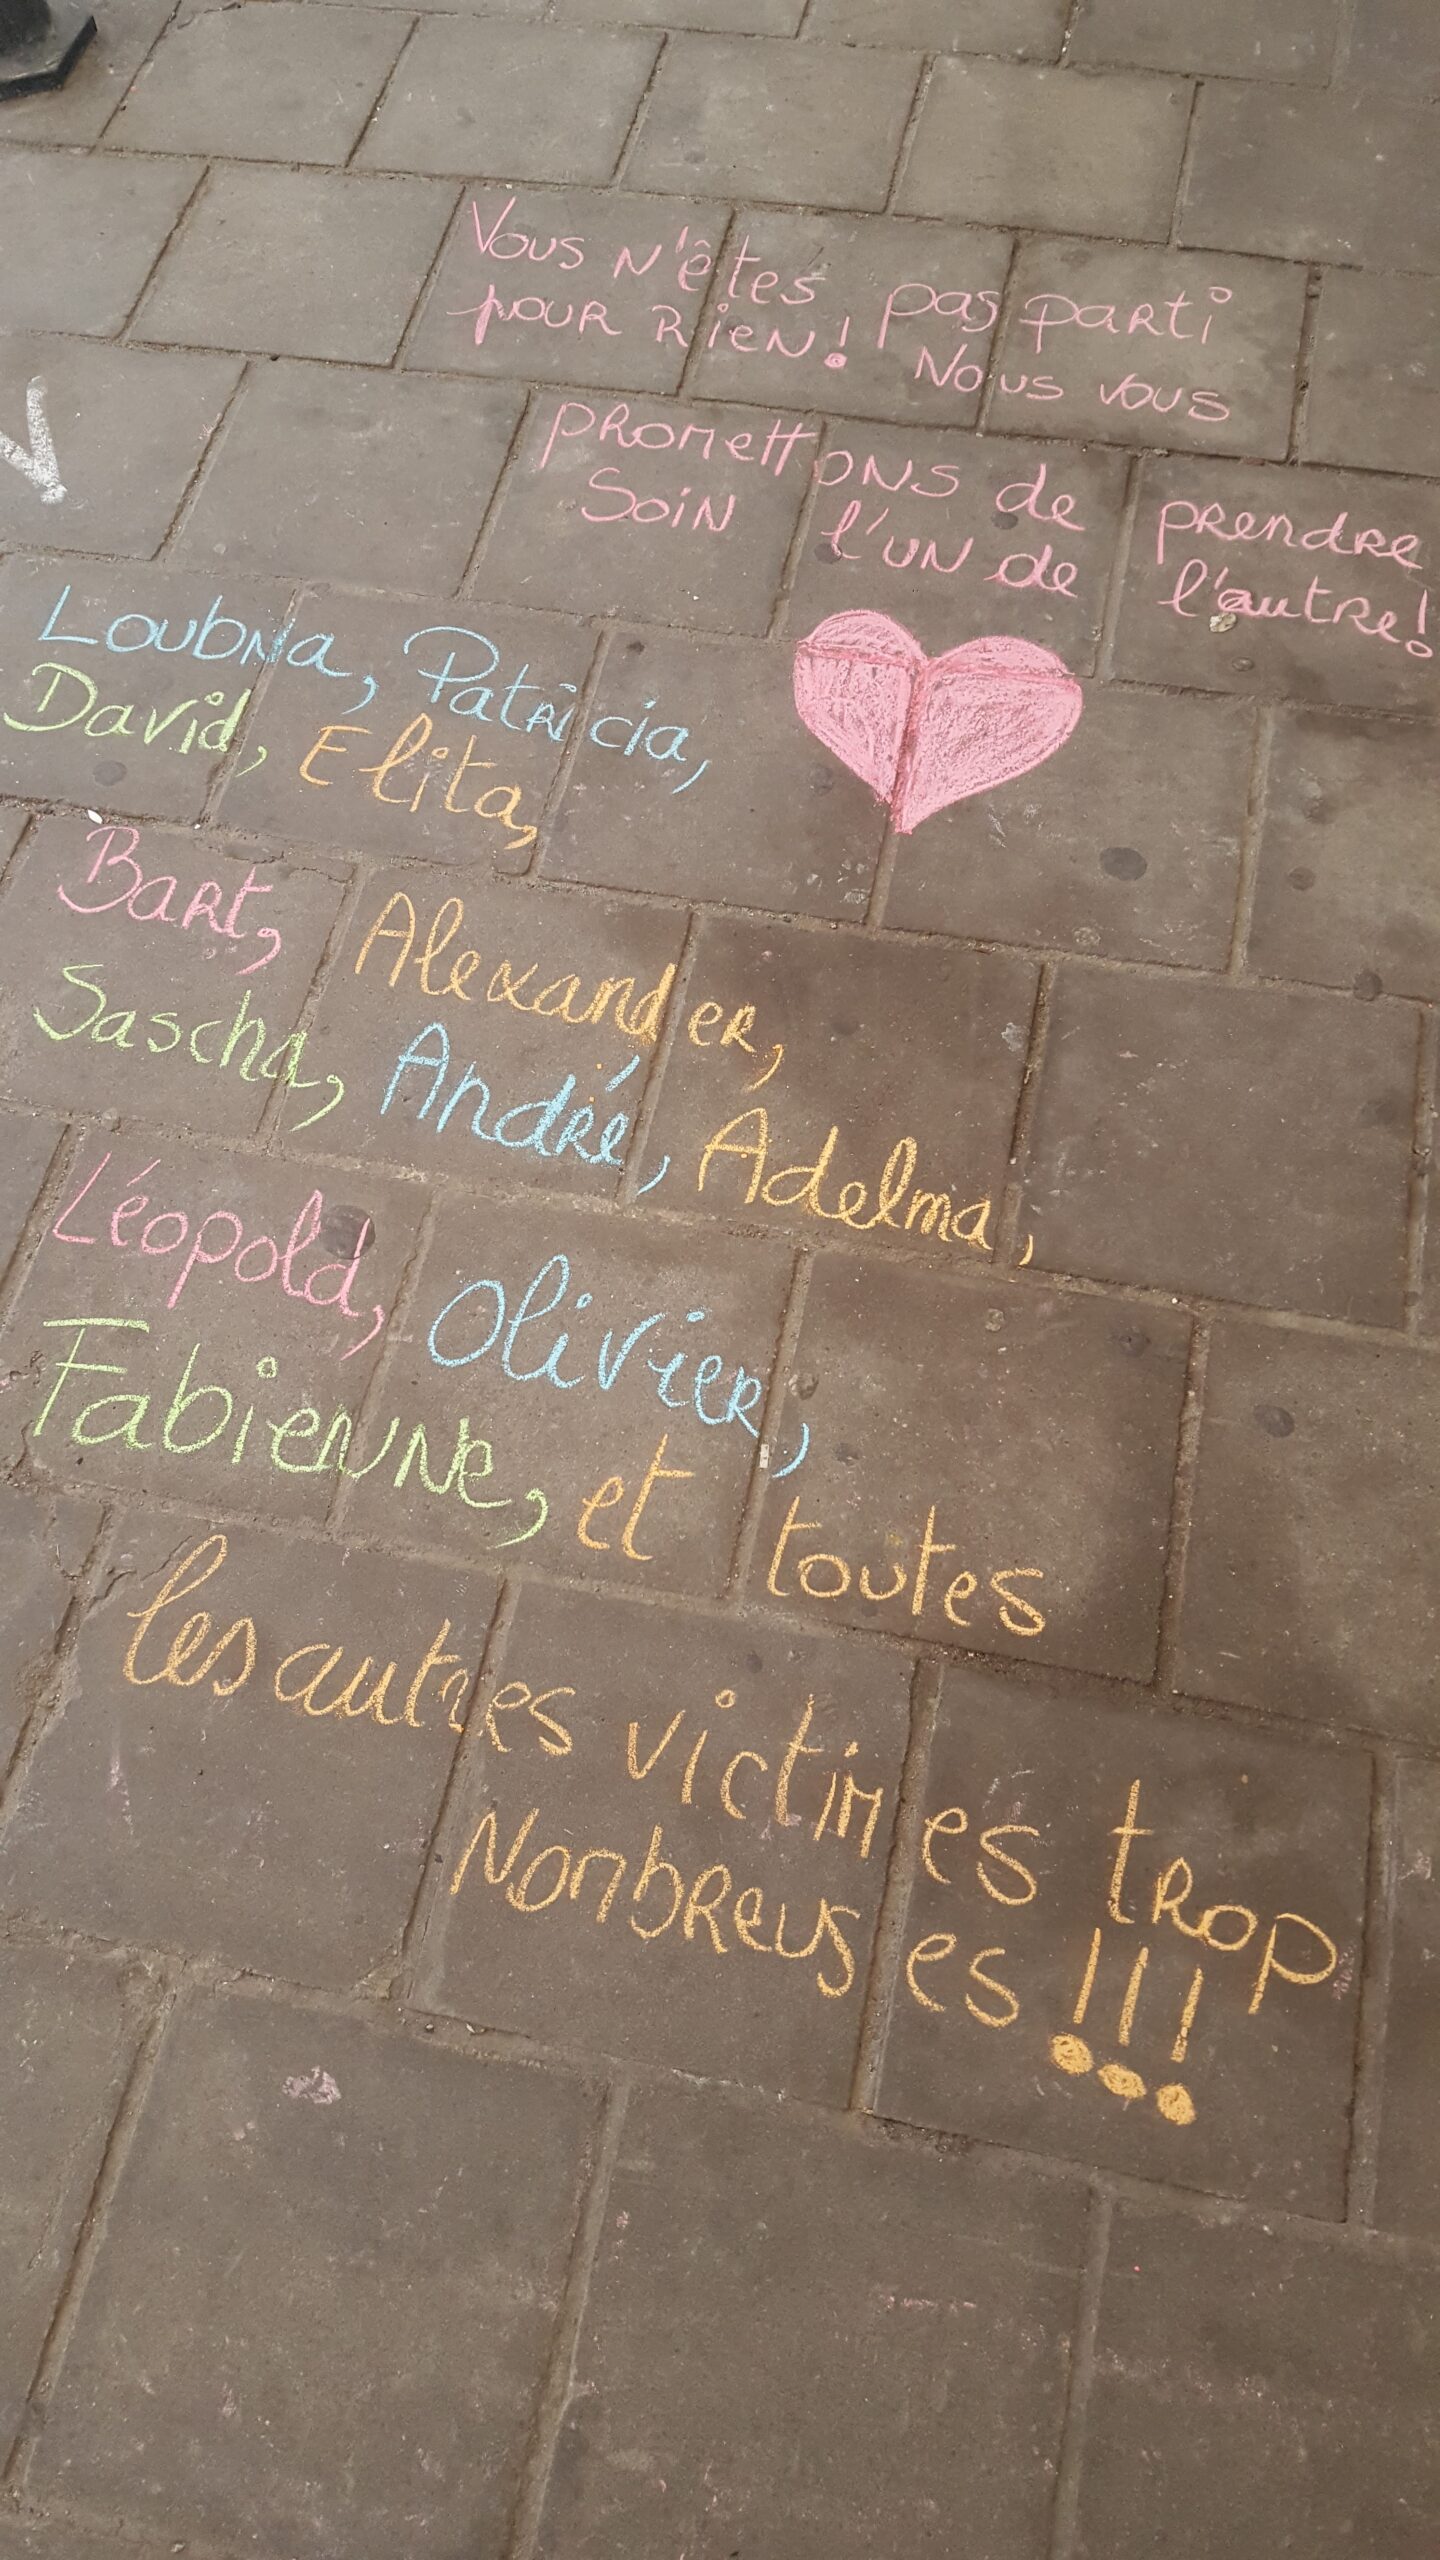 Vous n'êtes pas parti
pour rien! Nous vous
promettons de prendre
soin l'un de l'autre!
Loubna, Patricia,
David, Elita,
Bart, Alexander,
Sascha, André, Adelma,
Léopold, Olivier,
Fabienne, et toutes
les autres victimes trop
nombreuses!!!
V